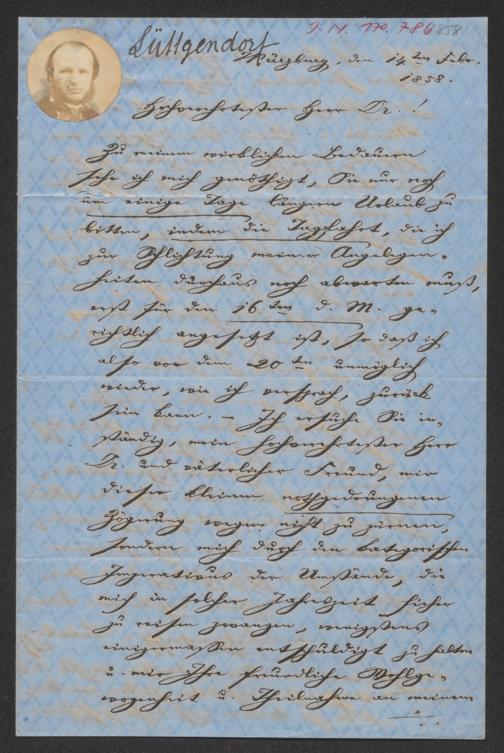 Lüttgendorf
J. N. 170.786
858
Würzburg, den 14ten Febr.
1858.
Hochverehrtester Herr Dr.!
Zu meinem wirklichen Bedauern
sehe ich mich genöthigt, Sie nur noch
um einige Tage längern Urlaub zu
bitten, indem die Tagfahrt, die ich
zur Schlichtung meiner Angelegen-
heiten durchaus noch abwarten muß,
erst für den 16ten d. M. ge-
richtlich angesetzt ist, so daß ich
also vor dem 20ten unmöglich
wieder, wie ich versprach, zurück
sein kann. – Ich ersuche Sie in-
ständig, mein hochverehrtester Herr
Dr. und väterlicher Freund, mir
dieser kleinen nothgedrungenen
Zögerung wegen nicht zu zürnen,
sondern mich durch den kategorischen
Imperativus der Umstände, die
mich in solcher Jahreszeit hieher
zu reisen zwangen, wenigstens
einigermassen entschuldigt zu halten
u. mir Ihre freundliche Wohlge-
wogenheit u. Theilnahme an meinem